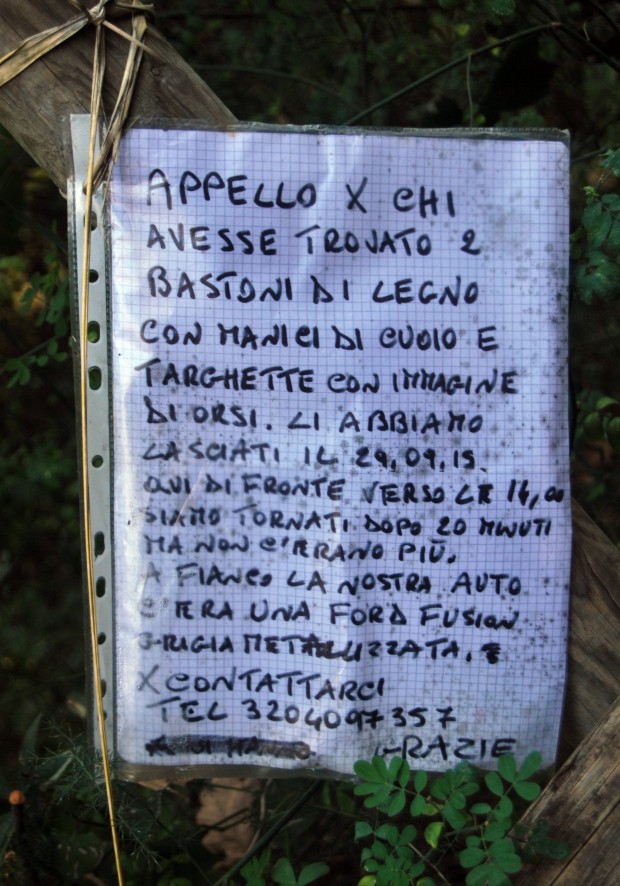 APPELLO X CHI
AVESSE TROVATO 2
BASTONI DI LEGNO
CON MANICI DI CUOIO E
TARGHETTE CON IMMAGINE
DI ORSI. LI ABBIAMO
LASCIATI IL 29,09,15.
QUI DI FRONTE VERSO LE 14,00
SIAMO TORNATI DOPO 20 MINUTI
MA NON C'ERANO PIÙ.
A FIANCO LA NOSTRA AUTO
C'ERA UNA FORD FUSION
GRIGIA METALLIZZATA.
X CONTATTARCI
TEL 3204097357
GRAZIE